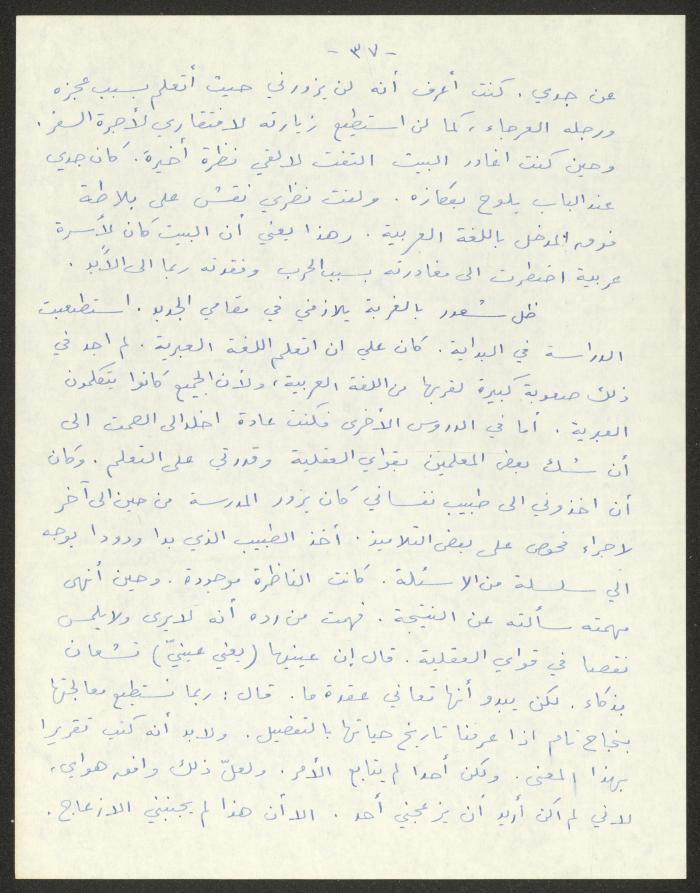 - ٣٧ -
عن جدي . كنت أعرف أنه لن يزورني حيث أتعلم بسبب عجزه
ورجله العرجاء ، كما لن استطيع زيارته لافتقاري لأجرة السفر .
وحين كنت اغادر البيت التفت لالقي نظرة أخيرة . كان جدي
عند الباب يلوح بعكازه . ولفت نظري نقش على بلاطة
فوق المدخل باللغة العربية . وهذا يعني أن البيت كان لأسرة
عربية اضطرت الى مغادرته بسبب الحرب وفقدته ربما الى الأبد .
ظل شعور بالغربة يلازمني في مقامي الجديد . استصعبت
الدراسة في البداية . كان علي ان اتعلم اللغة العبرية . لم اجد في
ذلك صعوبة كبيرة لقربها من اللغة العربية ، ولأن الجميع كانوا يتكلمون
العبرية . أما في الدروس الأخرى فكنت عادة اخلد الى الصمت الى
أن شك بعض المعلمين بقواي العقلية وقدرتي على التعلم . وكان
أن اخذوني الى طبيب نفساني كان يزور المدرسة من حين الى آخر
لاجراء فحوص على بعض التلاميذ . أخذ الطبيب الذي بدا ودودا يوجه
الي سلسلة من الاسئلة . كانت الناظرة موجودة . وحين أنهى
مهمته سألته عن النتيجة . فهمت من رده أنه لا يرى ولا يلمس
نقصا في قواي العقلية . قال إن عينيها (يعني عينيّ) تشعان
بذكاء . لكن يبدو أنها تعاني عقدة ما . قال : ربما نستطيع معالجتها
بنجاح تام اذا عرفنا تاريخ حياتها بالتفصيل . ولا بد أنه كتب تقريرا
بهذا المعنى . ولكن أحدا لم يتابع الأمر . ولعلّ ذلك وافق هواي ،
لاني لم اكن أريد أن يزعجني أحد . الا أن هذا لم يجنبني الازعاج .